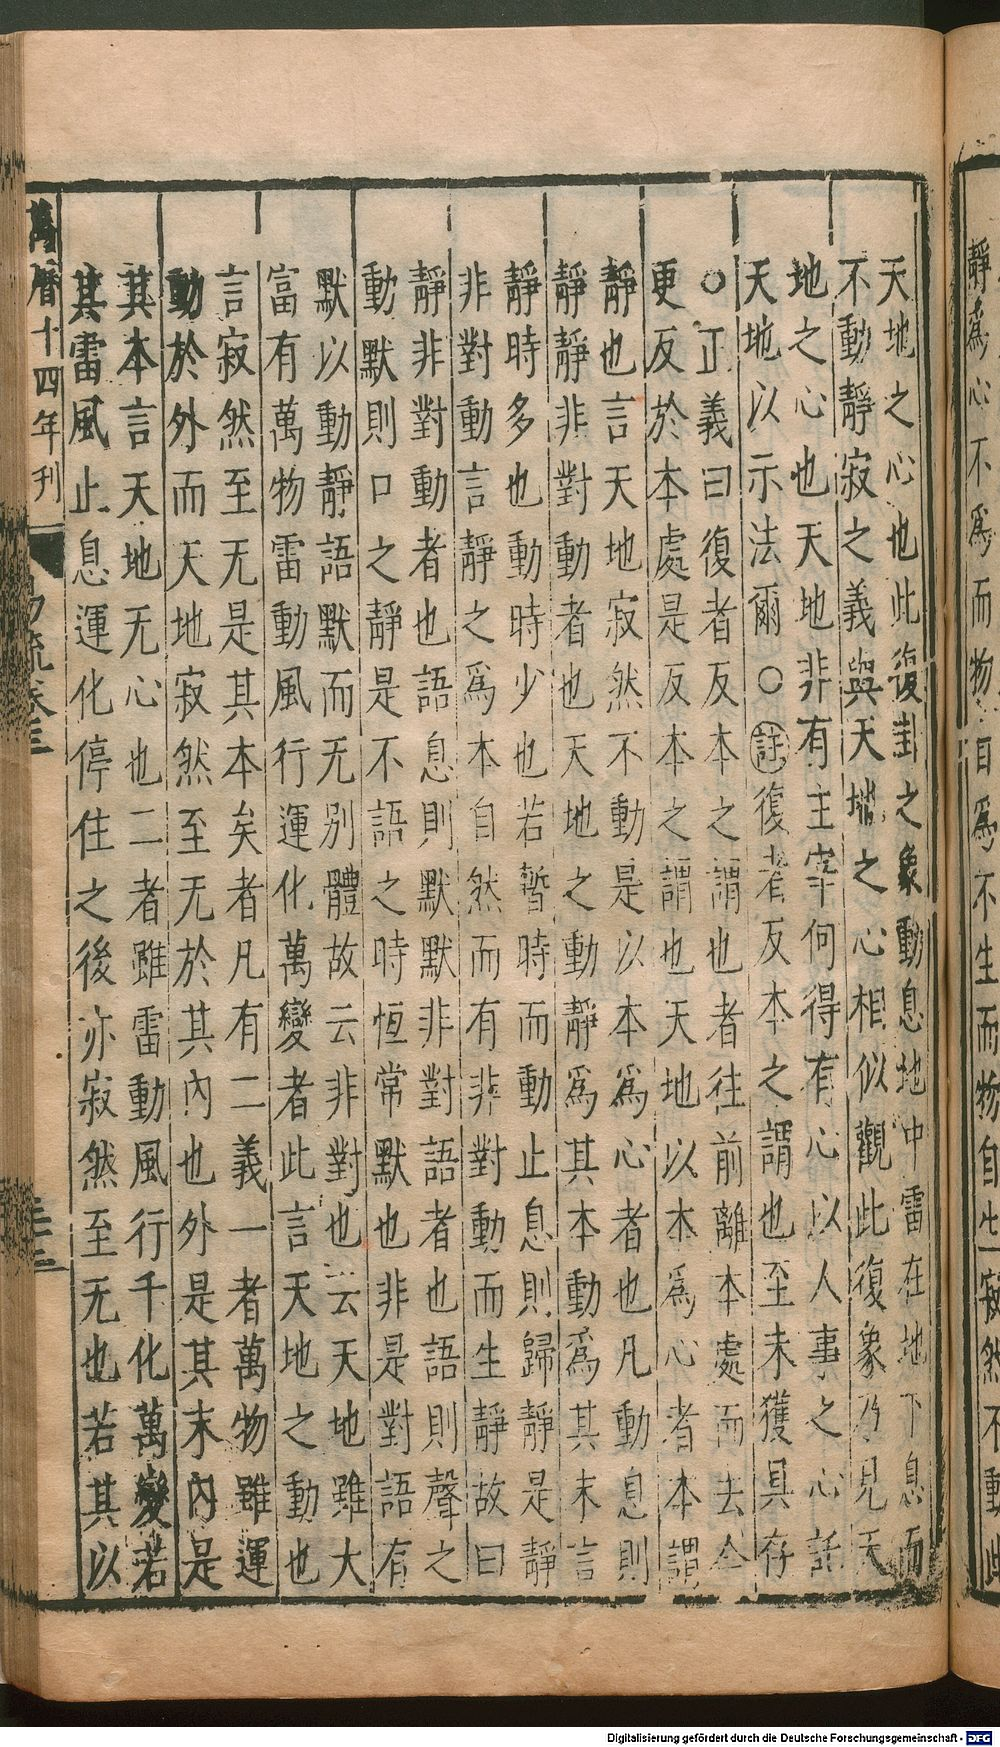 靜爲心不爲而物自爲不生而物自生寂然不動此
天地之心也此復卦之象動息地中雷在地下息而
不動靜寂之義與天地之心相似觀此復象乃見天
地之心也天地非有主宰何得有心以人事之心託
天地以示法爾○註復者反本之謂也至未獲具存
○正義曰復者反本之謂也者往前離本處而去今
更反於本處是反本之謂也天地以本爲心者本謂
靜也言天地寂然不動是以本爲心者也凡動息則
靜靜非對動者也天地之動靜爲其本動爲其末言
靜時多也動時少也若暫時而動止息則歸靜是靜
非對動言靜之爲本自然而有非對動而生靜故曰
靜非對動者也語息則默默非對語者也語則聲之
動默則口之靜是不語之時恒常默也非是對語有
默以動靜語默而无別體故云非對也云天地雖大
富有萬物雷動風行運化萬變者此言天地之動也
言寂然至无是其本矣者凡有二義一者萬物雖運
動於外而天地寂然至无於其內也外是其末內是
其本言天地无心也二者雖雷動風行千化萬變若
其雷風止息運化停住之後亦寂然至无也若其以
萬曆十四年刊
易疏卷三
Digitalisierung gefördert durch die Deutsche Forschungsgemeinschaft - DFG